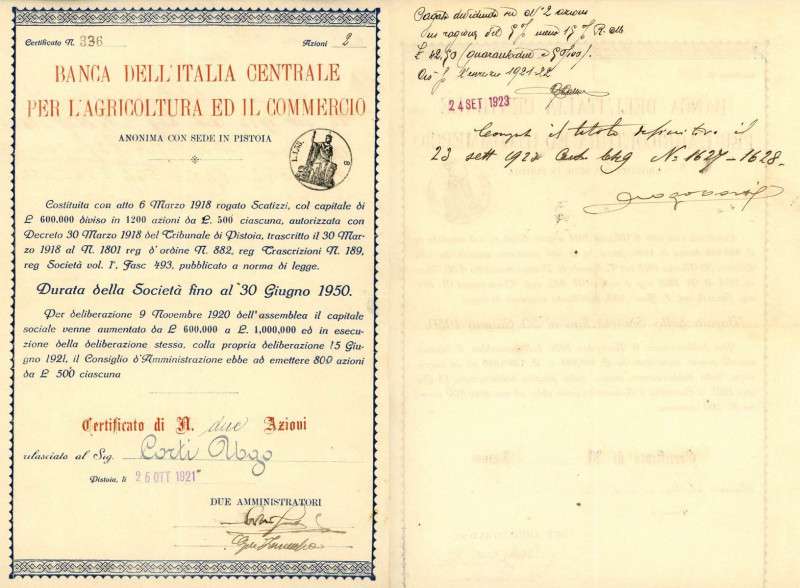 Certificato N. 336 Azioni 2
BANCA DELL'ITALIA CENTRALE
PER L'AGRICOLTURA ED IL COMMERCIO
ANONIMA CON SEDE IN PISTOIA
Costituita con atto 6 Marzo 1918 rogato Scatizzi, col capitale di
£ 600.000 diviso in 1200 azioni da £. 500 ciascuna, autorizzata con
Decreto 30 Marzo 1918 del Tribunale di Pistoia, trascritto il 30 Mar-
zo 1918 al N. 1801 reg d'ordine N. 882, reg Trascrizioni N. 189,
reg Società vol. 1°, Fasc 493, pubblicato a norma di legge.
Durata della Società fino al 30 Giugno 1950.
Per deliberazione 9 Novembre 1920 dell'assemblea il capitale
sociale venne aumentato da £ 600.000 a £. 1,000,000 ed in esecu-
zione della deliberazione stessa, colla propria deliberazione 15 Giu-
gno 1921, il Consiglio d'Amministrazione ebbe ad emettere 800 azioni
da £ 500 ciascuna
Certificato di N. due Azioni
rilasciato al Sig. Corti
Pistoia, li 26 OTT 1921
DUE AMMINISTRATORI
Pagato dividendo su N° 2 azioni
in ragione del
£ 42,50
1921-22
24 SET 1923
il titolo definitivo il
23 sett 1922 N. 1627-1628